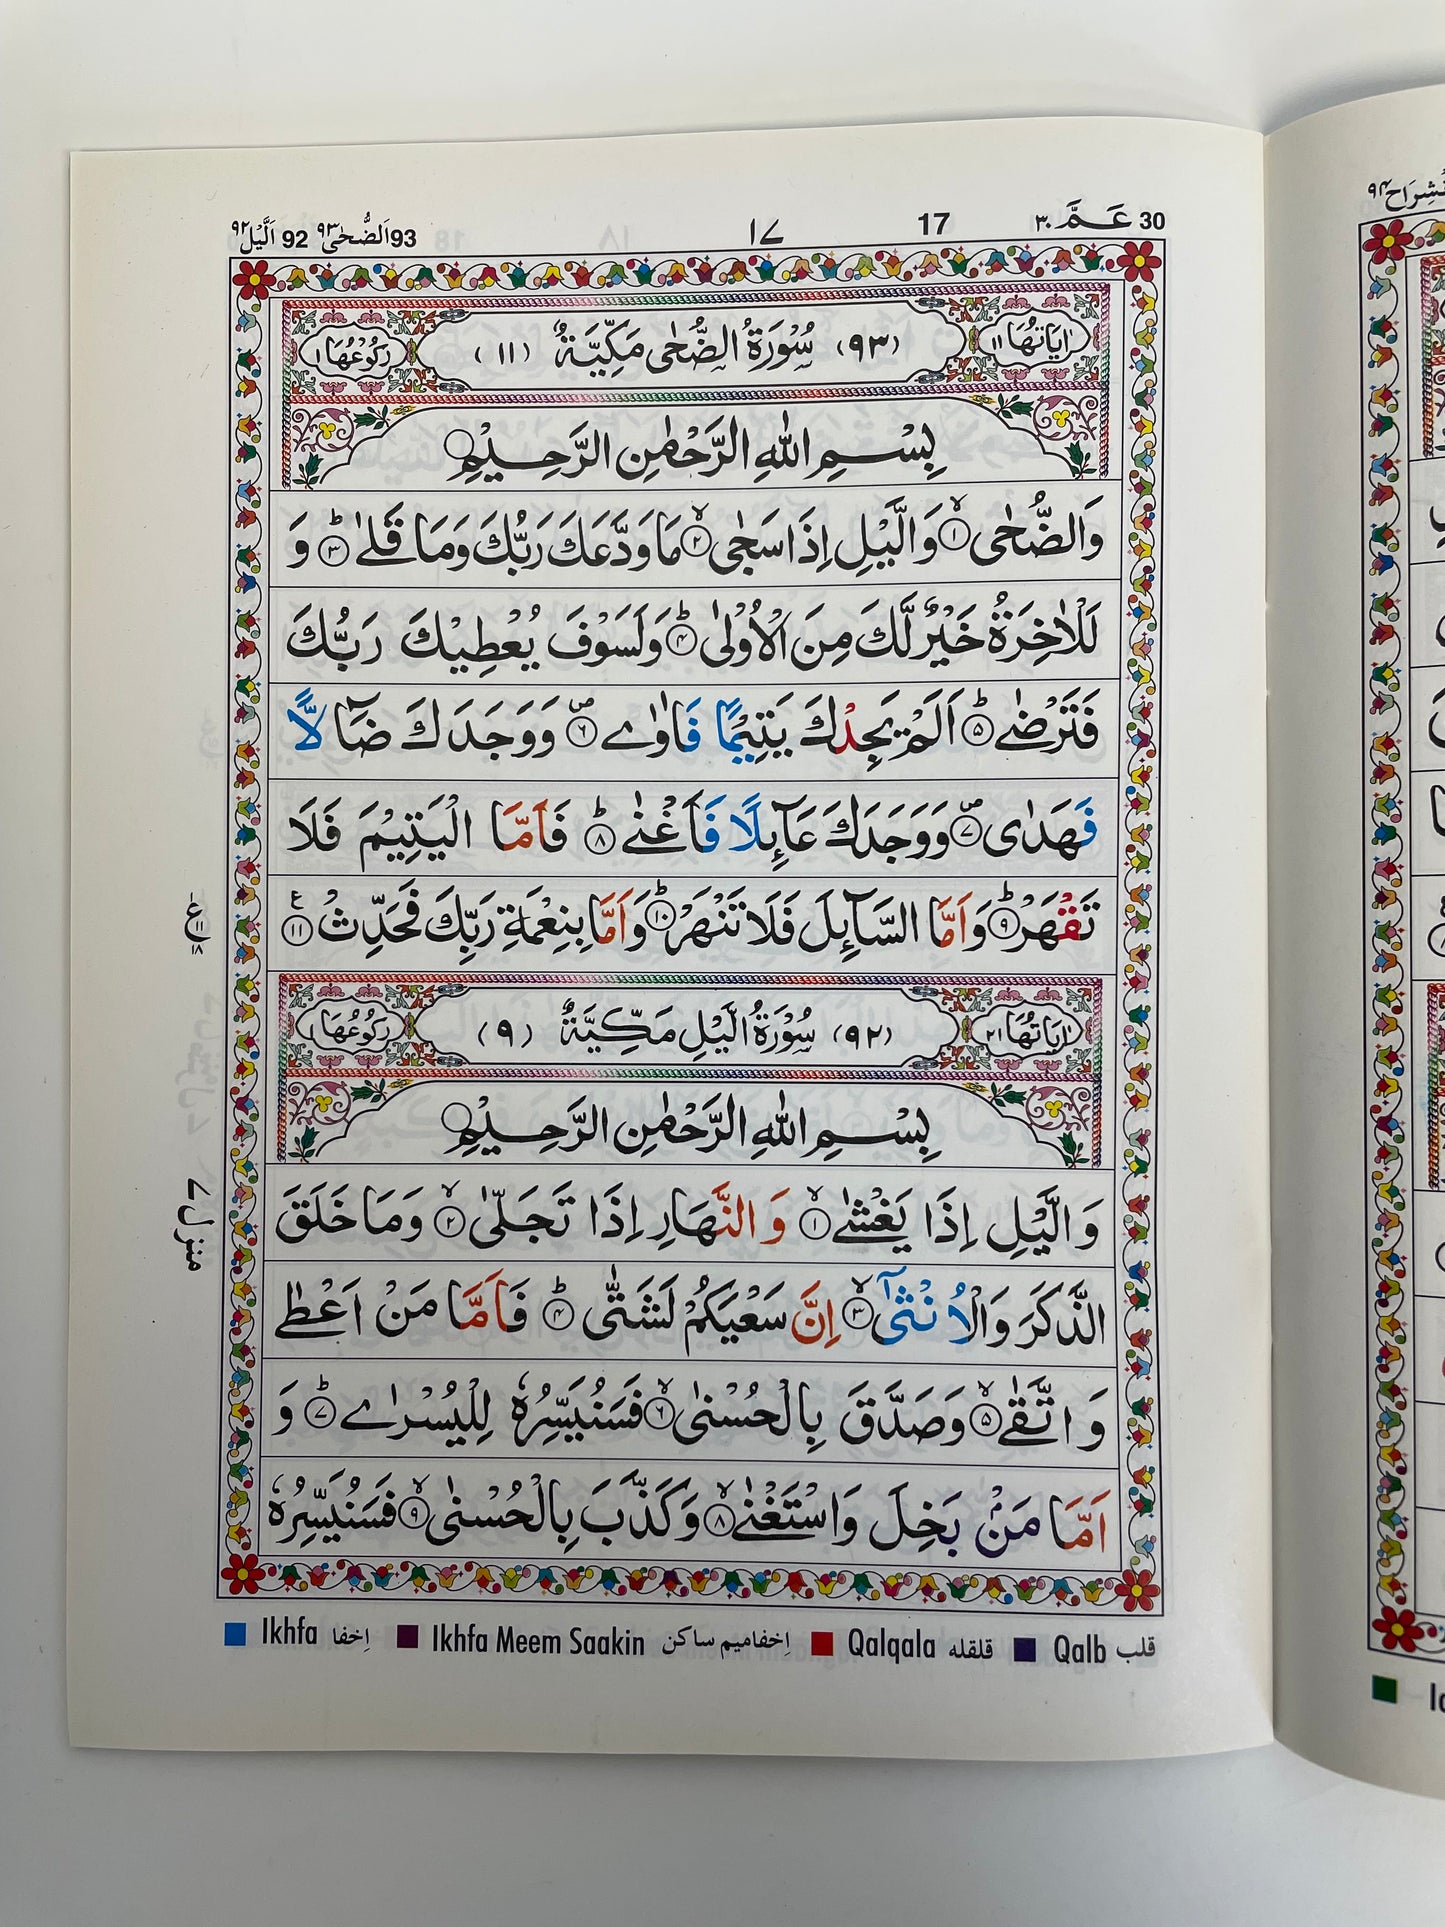 30 عَمَّ ٣٠
17
١٧
93 اَلضُّحٰى ٩٣ 92 اَلَّيْل ٩٢
اٰيَاتُهَا ١١
(٩٣) سُوْرَةُ الضُّحٰى مَكِّيَّةٌ (١١)
رُكُوْعُهَا ١
بِسْمِ اللّٰهِ الرَّحْمٰنِ الرَّحِيْمِ
وَالضُّحٰى ۙ﴿١﴾ وَالَّيْلِ اِذَا سَجٰى ۙ﴿٢﴾ مَا وَدَّعَكَ رَبُّكَ وَمَا قَلٰى ؕ﴿٣﴾ وَ
لَلْاٰخِرَةُ خَيْرٌ لَّكَ مِنَ الْاُوْلٰى ؕ﴿٤﴾ وَلَسَوْفَ يُعْطِيْكَ رَبُّكَ
فَتَرْضٰى ؕ﴿٥﴾ اَلَمْ يَجِدْكَ يَتِيْمًا فَاٰوٰى ۪﴿٦﴾ وَوَجَدَكَ ضَآلًّا
فَهَدٰى ۪﴿٧﴾ وَوَجَدَكَ عَآئِلًا فَاَغْنٰى ؕ﴿٨﴾ فَاَمَّا الْيَتِيْمَ فَلَا
تَقْهَرْ ؕ﴿٩﴾ وَاَمَّا السَّآئِلَ فَلَا تَنْهَرْ ؕ﴿١٠﴾ وَاَمَّا بِنِعْمَةِ رَبِّكَ فَحَدِّثْ ﴿١١﴾ ع
١١ ع ١٨
اٰيَاتُهَا ٢١
(٩٢) سُوْرَةُ الَّيْلِ مَكِّيَّةٌ (٩)
رُكُوْعُهَا ١
بِسْمِ اللّٰهِ الرَّحْمٰنِ الرَّحِيْمِ
وَالَّيْلِ اِذَا يَغْشٰى ۙ﴿١﴾ وَالنَّهَارِ اِذَا تَجَلّٰى ۙ﴿٢﴾ وَمَا خَلَقَ
الذَّكَرَ وَالْاُنْثٰىٓ ۙ﴿٣﴾ اِنَّ سَعْيَكُمْ لَشَتّٰى ؕ﴿٤﴾ فَاَمَّا مَنْ اَعْطٰى
وَاتَّقٰى ۙ﴿٥﴾ وَصَدَّقَ بِالْحُسْنٰى ۙ﴿٦﴾ فَسَنُيَسِّرُهٗ لِلْيُسْرٰى ؕ﴿٧﴾ وَ
اَمَّا مَنْۢ بَخِلَ وَاسْتَغْنٰى ۙ﴿٨﴾ وَكَذَّبَ بِالْحُسْنٰى ۙ﴿٩﴾ فَسَنُيَسِّرُهٗ
منزل ٧
Ikhfa اِخفا Ikhfa Meem Saakin اِخفا ميم ساكن Qalqala قلقله Qalb قلب